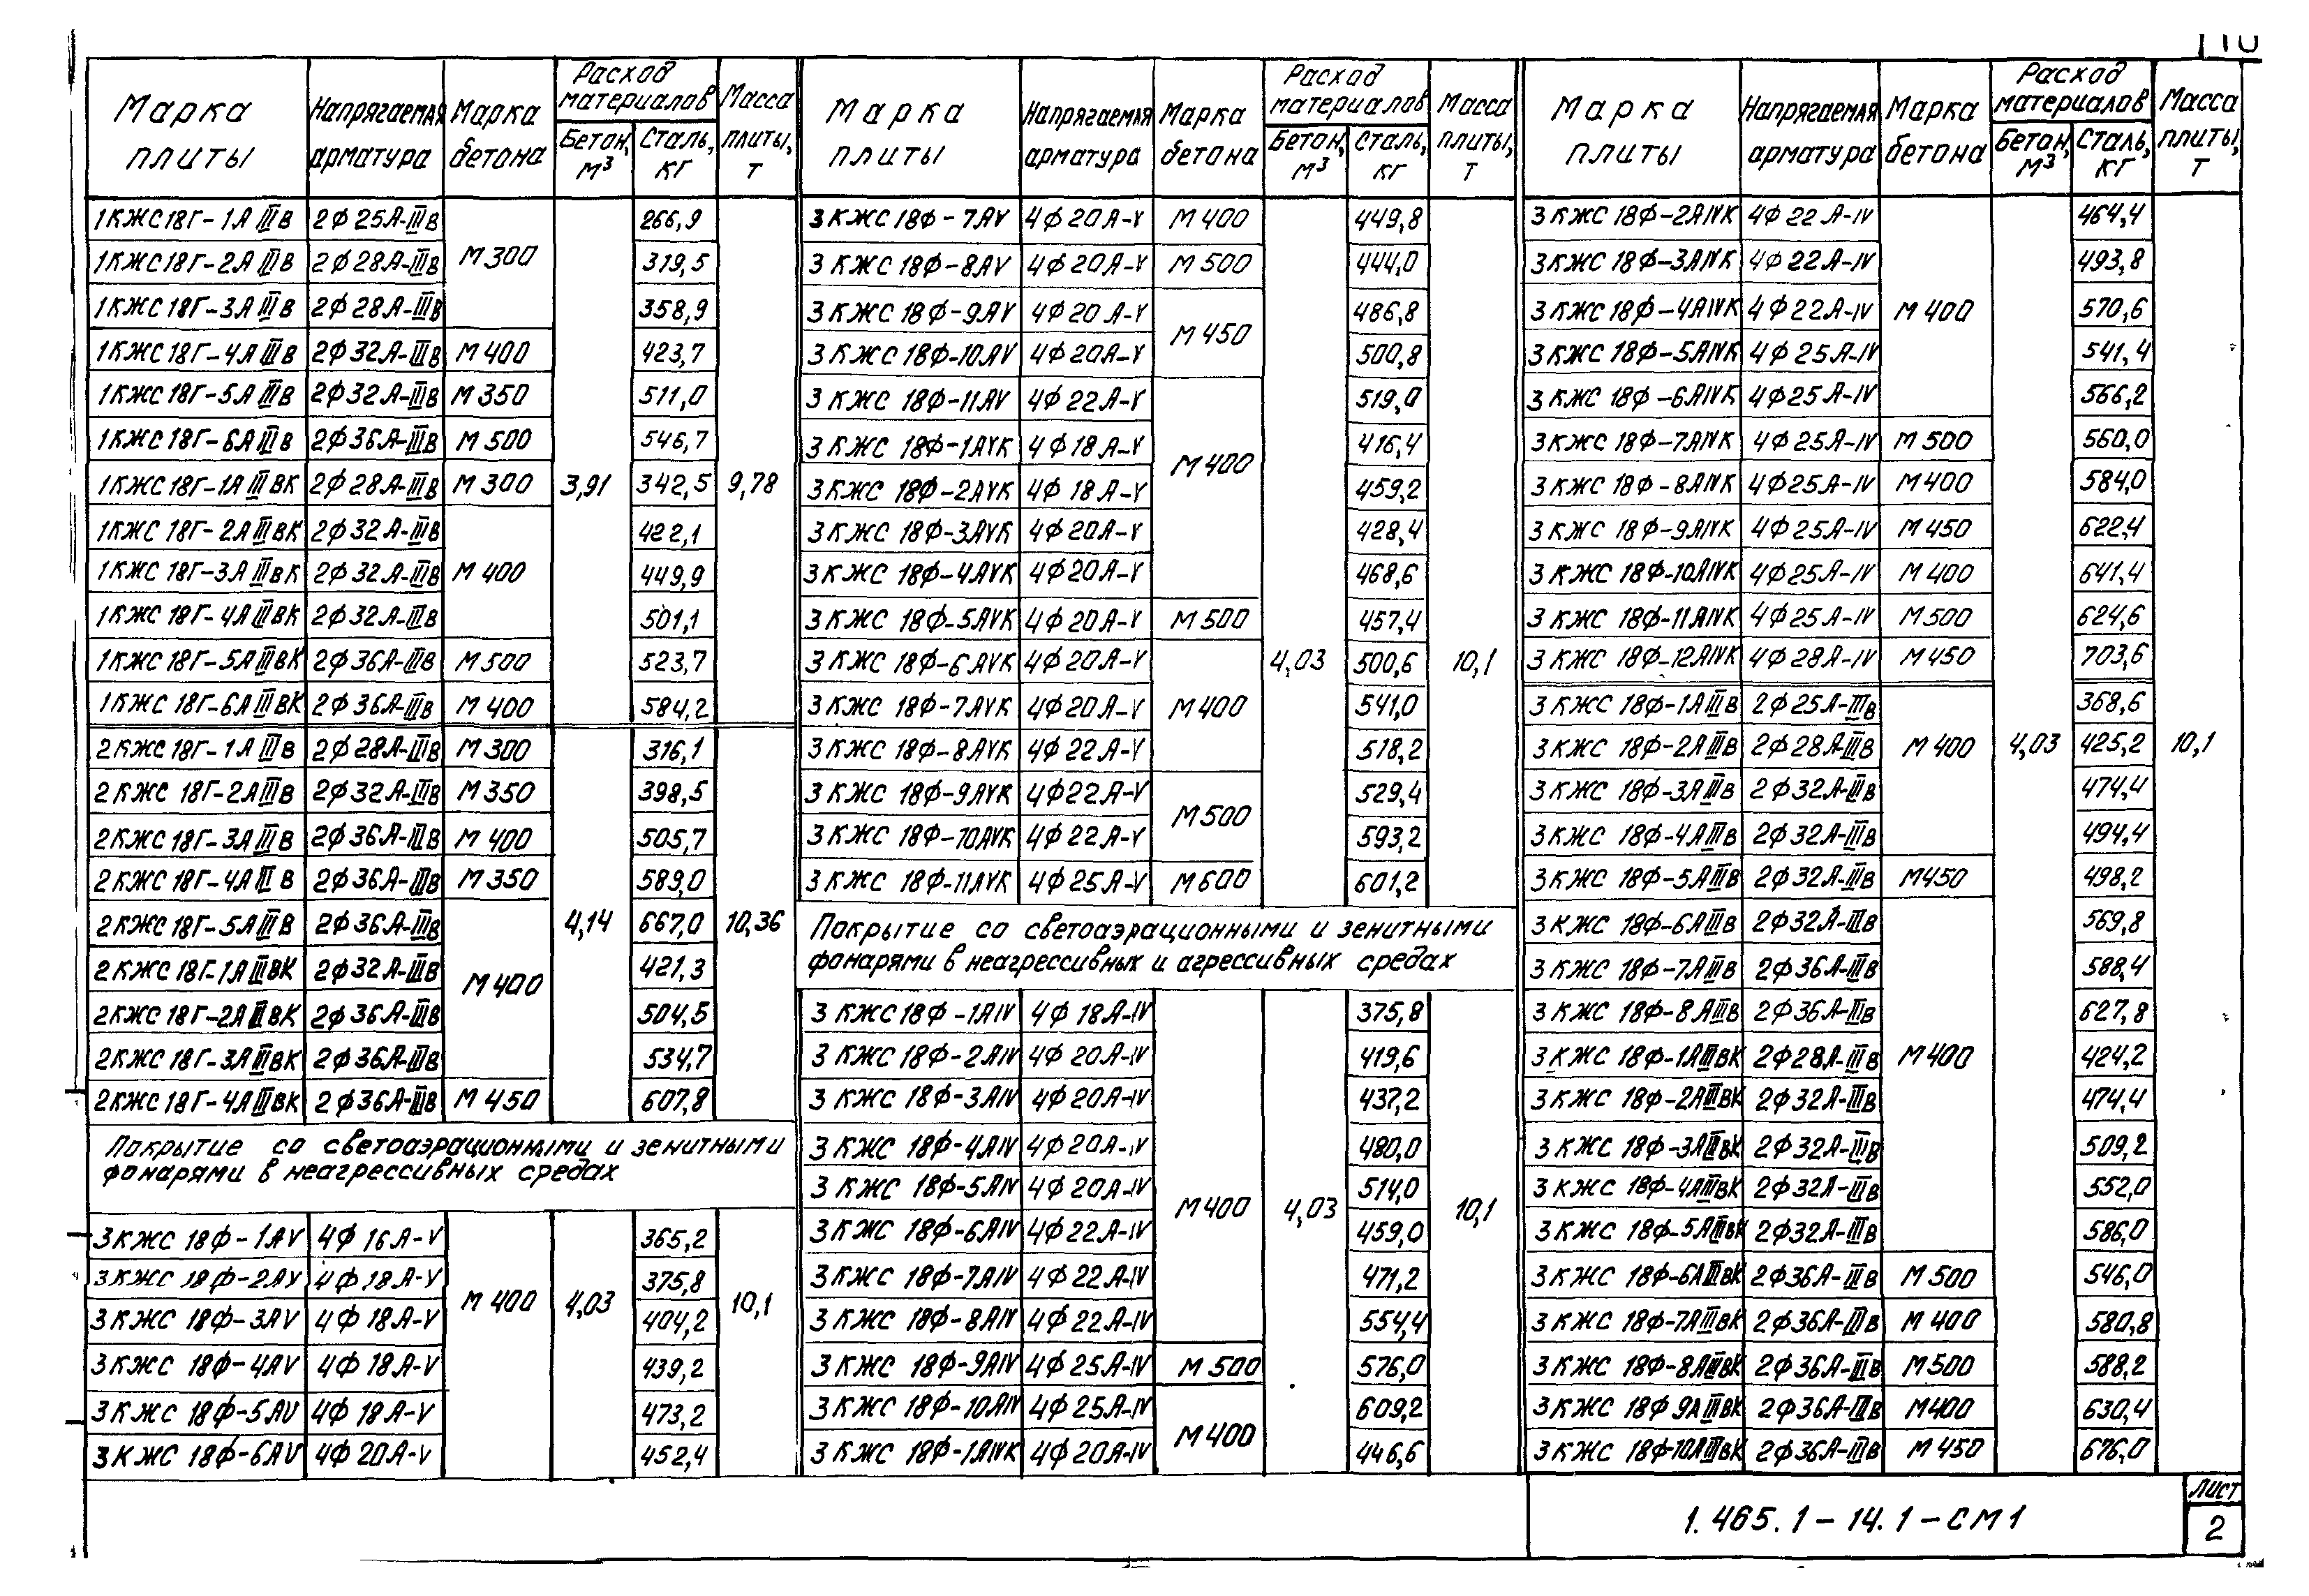 Марка плиты | Напрягаемая арматура | Марка бетона | Расход материалов | Бетон, м³ | Сталь, кг | Масса плиты, т
1КЖС18Г-1АIIIВ 2ф25А-IIIв М300 3,91 266,9 9,78
1КЖС18Г-2АIIIВ 2ф28А-IIIв 319,5
1КЖС18Г-3АIIIВ 2ф28А-IIIв 358,9
1КЖС18Г-4АIIIВ 2ф32А-IIIв М400 423,7
1КЖС18Г-5АIIIВ 2ф32А-IIIв М350 511,0
1КЖС18Г-6АIIIВ 2ф36А-IIIв М500 546,7
1КЖС18Г-1АIIIВК 2ф28А-IIIв М300 342,5
1КЖС18Г-2АIIIВК 2ф32А-IIIв М400 422,1
1КЖС18Г-3АIIIВК 2ф32А-IIIв 449,9
1КЖС18Г-4АIIIВК 2ф32А-IIIв 501,1
1КЖС18Г-5АIIIВК 2ф36А-IIIв М500 523,7
1КЖС18Г-6АIIIВК 2ф36А-IIIв М400 584,2
2КЖС18Г-1АIIIВ 2ф28А-IIIв М300 4,14 316,1 10,36
2КЖС18Г-2АIIIВ 2ф32А-IIIв М350 398,5
2КЖС18Г-3АIIIВ 2ф36А-IIIв М400 505,7
2КЖС18Г-4АIIIВ 2ф36А-IIIв М350 589,0
2КЖС18Г-5АIIIВ 2ф36А-IIIв М400 667,0
2КЖС18Г-1АIIIВК 2ф32А-IIIв 421,3
2КЖС18Г-2АIIIВК 2ф36А-IIIв 504,5
2КЖС18Г-3АIIIВК 2ф36А-IIIв 534,7
2КЖС18Г-4АIIIВК 2ф36А-IIIв М450 607,8
Покрытие со светоаэрационными и зенитными
фонарями в неагрессивных средах
3КЖС 18ф-1АV 4ф16А-V М400 4,03 365,2 10,1
3КЖС 18ф-2АV 4ф18А-V 375,8
3КЖС 18ф-3АV 4ф18А-V 404,2
3КЖС 18ф-4АV 4ф18А-V 439,2
3КЖС 18ф-5АV 4ф18А-V 473,2
3КЖС 18ф-6АV 4ф20А-V 452,4
Марка плиты | Напрягаемая арматура | Марка бетона | Расход материалов | Бетон, м³ | Сталь, кг | Масса плиты, т
3КЖС 18ф-7АV 4ф20А-V М400 4,03 449,8 10,1
3КЖС 18ф-8АV 4ф20А-V М500 444,0
3КЖС 18ф-9АV 4ф20А-V М450 486,8
3КЖС 18ф-10АV 4ф20А-V 500,8
3КЖС 18ф-11АV 4ф22А-V М400 519,0
3КЖС 18ф-1АVК 4ф18А-V 416,4
3КЖС 18ф-2АVК 4ф18А-V 459,2
3КЖС 18ф-3АVК 4ф20А-V 428,4
3КЖС 18ф-4АVК 4ф20А-V 468,6
3КЖС 18ф-5АVК 4ф20А-V М500 457,4
3КЖС 18ф-6АVК 4ф20А-V М400 500,6
3КЖС 18ф-7АVК 4ф20А-V 541,0
3КЖС 18ф-8АVК 4ф22А-V 518,2
3КЖС 18ф-9АVК 4ф22А-V М500 529,4
3КЖС 18ф-10АVК 4ф22А-V 593,2
3КЖС 18ф-11АVК 4ф25А-V М600 601,2
Покрытие со светоаэрационными и зенитными
фонарями в неагрессивных и агрессивных средах
3КЖС 18ф-1АIV 4ф18А-IV М400 4,03 375,8 10,1
3КЖС 18ф-2АIV 4ф20А-IV 419,6
3КЖС 18ф-3АIV 4ф20А-IV 437,2
3КЖС 18ф-4АIV 4ф20А-IV 480,0
3КЖС 18ф-5АIV 4ф20А-IV 514,0
3КЖС 18ф-6АIV 4ф22А-IV 459,0
3КЖС 18ф-7АIV 4ф22А-IV 471,2
3КЖС 18ф-8АIV 4ф22А-IV 554,4
3КЖС 18ф-9АIV 4ф25А-IV М500 576,0
3КЖС 18ф-10АIV 4ф25А-IV М400 609,2
3КЖС 18ф-1АIVК 4ф20А-IV 446,6
Марка плиты | Напрягаемая арматура | Марка бетона | Расход материалов | Бетон, м³ | Сталь, кг | Масса плиты, т
3КЖС 18ф-2АIVК 4ф22А-IV М400 4,03 464,4 10,1
3КЖС 18ф-3АIVК 4ф22А-IV 493,8
3КЖС 18ф-4АIVК 4ф22А-IV 570,6
3КЖС 18ф-5АIVК 4ф25А-IV 541,4
3КЖС 18ф-6АIVК 4ф25А-IV 566,2
3КЖС 18ф-7АIVК 4ф25А-IV М500 560,0
3КЖС 18ф-8АIVК 4ф25А-IV М400 584,0
3КЖС 18ф-9АIVК 4ф25А-IV М450 622,4
3КЖС 18ф-10АIVК 4ф25А-IV М400 641,4
3КЖС 18ф-11АIVК 4ф25А-IV М500 624,6
3КЖС 18ф-12АIVК 4ф28А-IV М450 703,6
3КЖС 18ф-1АIIIВ 2ф25А-IIIв М400 368,6
3КЖС 18ф-2АIIIВ 2ф28А-IIIв 425,2
3КЖС 18ф-3АIIIВ 2ф32А-IIIв 474,4
3КЖС 18ф-4АIIIВ 2ф32А-IIIв 494,4
3КЖС 18ф-5АIIIВ 2ф32А-IIIв М450 498,2
3КЖС 18ф-6АIIIВ 2ф32А-IIIв М400 569,8
3КЖС 18ф-7АIIIВ 2ф36А-IIIв 588,4
3КЖС 18ф-8АIIIВ 2ф36А-IIIв 627,8
3КЖС 18ф-1АIIIВК 2ф28А-IIIв 424,2
3КЖС 18ф-2АIIIВК 2ф32А-IIIв 474,4
3КЖС 18ф-3АIIIВК 2ф32А-IIIв 509,2
3КЖС 18ф-4АIIIВК 2ф32А-IIIв 552,0
3КЖС 18ф-5АIIIВК 2ф32А-IIIв 586,0
3КЖС 18ф-6АIIIВК 2ф36А-IIIв М500 546,0
3КЖС 18ф-7АIIIВК 2ф36А-IIIв М400 580,8
3КЖС 18ф-8АIIIВК 2ф36А-IIIв М500 588,2
3КЖС 18ф 9АIIIВК 2ф36А-IIIв М400 630,4
3КЖС 18ф-10АIIIВК 2ф36А-IIIв М450 676,0
1.465.1-14.1-СМ1
Лист
2